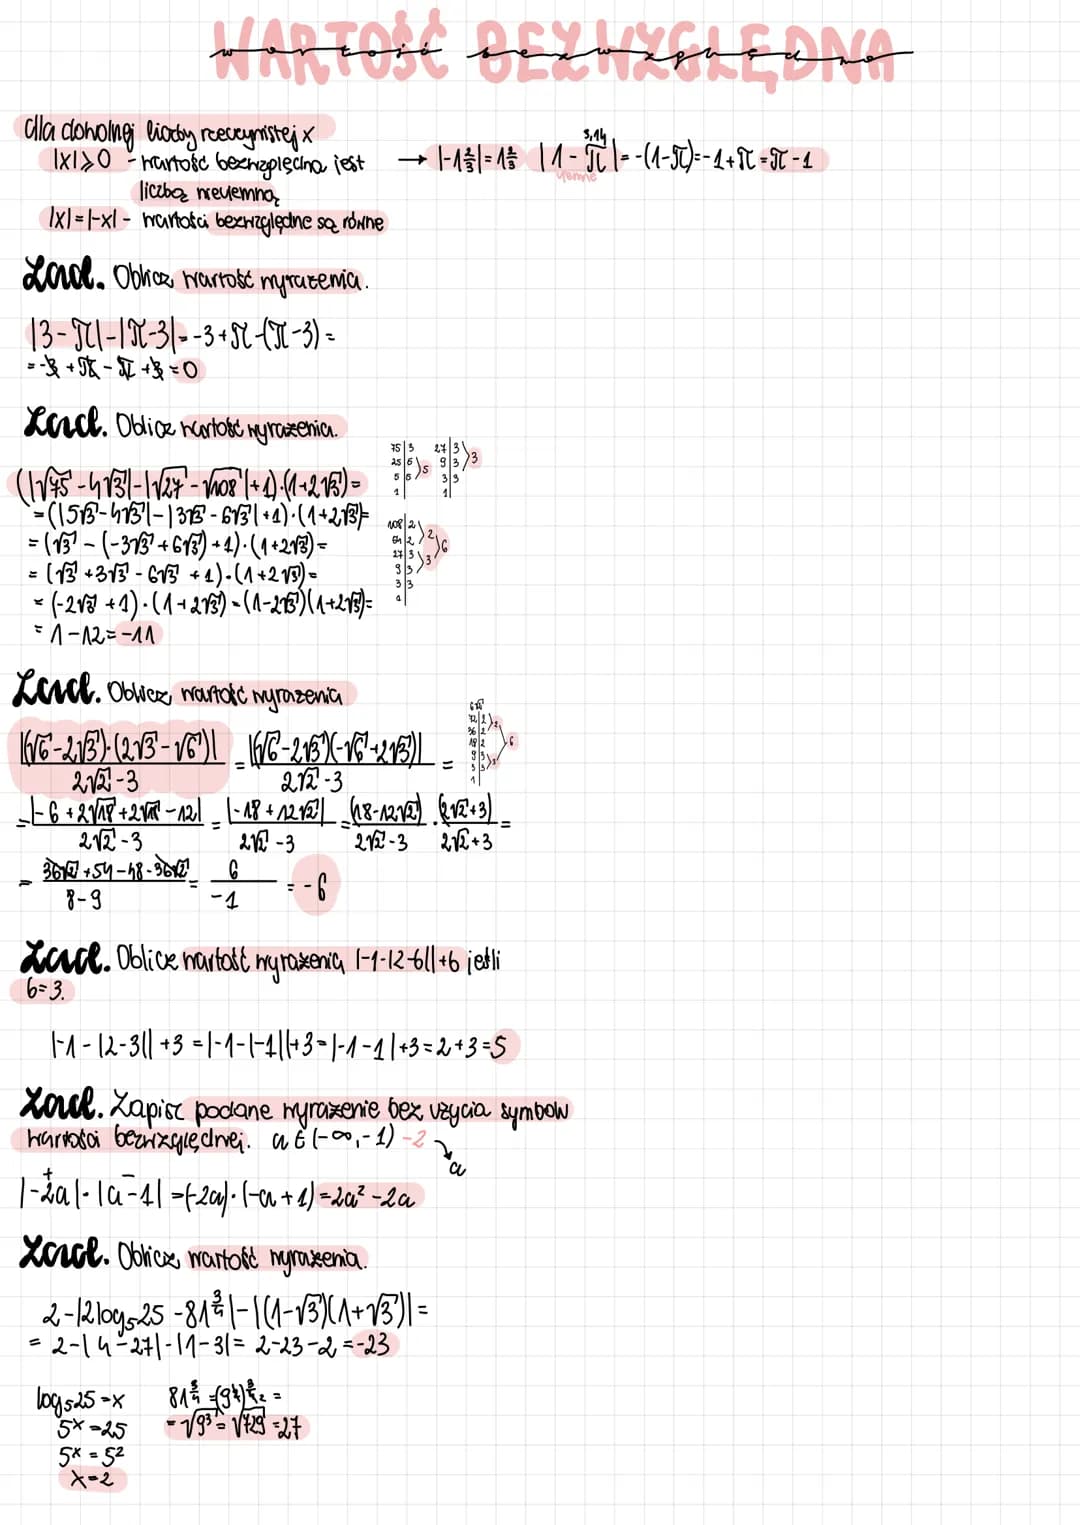 WARTOŚĆ BEZWZGLĘDNA
wartość bezwzględna
dla dowolnej liczby rzeczywistej x
|x| ⩾ 0 - wartość bezwzględna jest
liczbą nieujemną
|x| = |-x| - wartości bezwzględne są równe
→ |-1⅔| = 1⅔
3,14
|1 - π| = -(1-π) = -1+π = π-1
Zad. Oblicz wartość wyrażenia.
|3-π| - |π-3| = -3+π-(π-3) =
= -3+π-π+3 = 0
Zad. Oblicz wartość wyrażenia.
(|√75 - 4√3| - |√27 - √108| + 1)·(1+2√3) =
= (|5√3 - 4√3| - |3√3 - 6√3| + 1)·(1+2√3) =
= (√3 - (-3√3 + 6√3) + 1)·(1+2√3) =
= (√3 + 3√3 - 6√3 + 1)·(1+2√3) =
= (-2√3 + 1)·(1+2√3) = (1-2√3)(1+2√3) =
= 1-12 = -11
75|3 27|3
25|5 9|3 3
5|5 5 3|3
1| 1|
108|2
54|2 2
27|3 6
9|3 3
3|3
1|
Zad. Oblicz wartość wyrażenia
|(√6-2√3)·(2√3-√6)| / (2√2-3) = |(√6-2√3)(-√6+2√3)| / (2√2-3) =
= |-6+2√18+2√18-12| / (2√2-3) = |-18+12√2| / (2√2-3) = (18-12√2) / (2√2-3) · (2√2+3) / (2√2+3) =
= (36√2+54-48-36√2) / (8-9) = 6 / -1 = -6
72|2
36|2 2
18|2 6
9|3
3|3 3
1|
Zad. Oblicz wartość wyrażenia |-1-|2-b||+b jeśli
b=3.
|-1-|2-3||+3 = |-1-|-1||+3 = |-1-1|+3 = 2+3 = 5
Zad. Zapisz podane wyrażenie bez użycia symbow
wartości bezwzględnej. a ∈ (-∞,-1) -2
a
+ -
|-2a|·|a-1| = (-2a)·(-a+1) = 2a² - 2a
Zad. Oblicz wartość wyrażenia.
2-|2log₅25 - 81^¾| - |(1-√3)(1+√3)| =
= 2-|4-27|-|1-3| = 2-23-2 = -23
log₅25 = x
5ˣ = 25
5ˣ = 5²
x = 2
= √9³ = √729 = 27